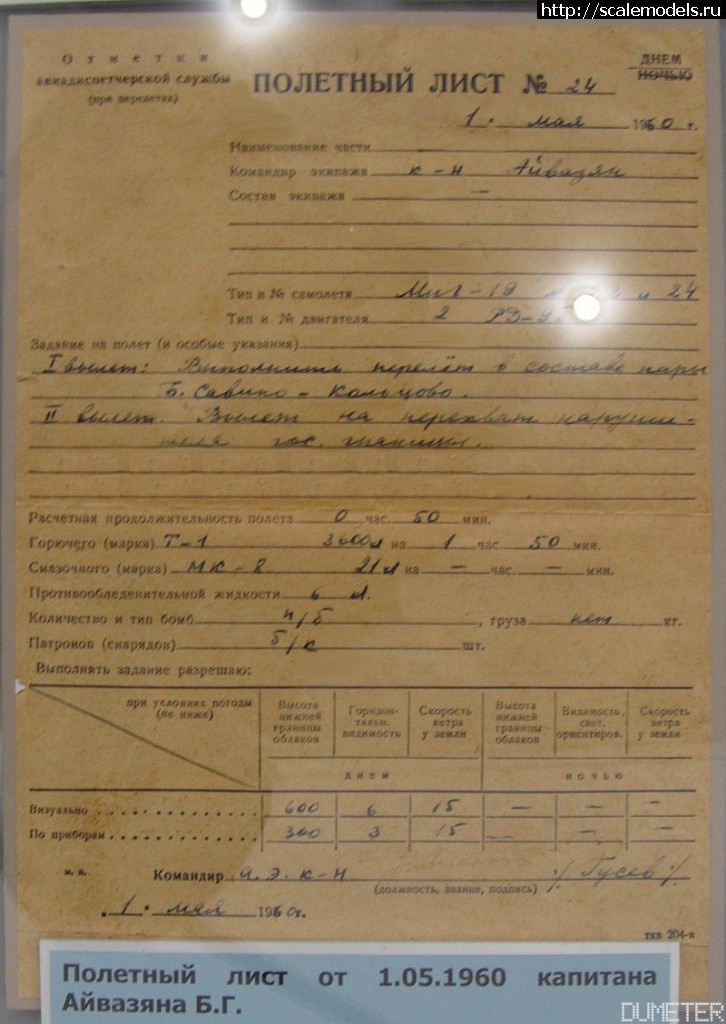 http://scalemodels.ru
Отметки
авиадиспетчерской службы
(при перелетах)
ПОЛЕТНЫЙ ЛИСТ № 24
ДНЕМ
НОЧЬЮ
1. мая 1960 г.
Наименование части —
Командир экипажа к-н Айвазян
Состав экипажа —
Тип и № самолета МиГ-19 и 24
Тип и № двигателя 2 РД-9Б
Задание на полет (и особые указания)
I вылет: Выполнить перелёт в составе пары
Б. Савино – Кольцово.
II вылет. Вылет на перехват наруши-
теля гос. границы.
Расчетная продолжительность полета 0 час. 50 мин.
Горючего (марка) Т-1 3600л на 1 час. 50 мин.
Смазочного (марка) МК-8 21л на — час. — мин.
Противообледенительной жидкости 6 л.
Количество и тип бомб н/б, груза нет кг.
Патронов (снарядов) б/к шт.
Выполнять задание разрешаю:
при условиях погоды
(не ниже)
Высота нижней границы облаков
Горизон-тальн. видимость
Скорость ветра у земли
Высота нижней границы облаков
Видимость, свет. ориентиров.
Скорость ветра у земли
днем
ночью
Визуально 600 6 15 — — —
По приборам 300 3 15 — — —
м. п. Командир а.э. к-н /Гусев/
(должность, звание, подпись)
1. мая 1960г.
ткв 204-в
Полетный лист от 1.05.1960 капитана
Айвазяна Б.Г.
DUMETER